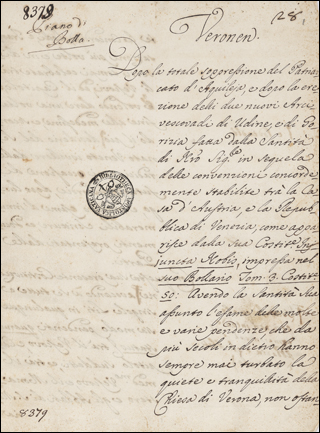 8379
128.
Grano
Bolla
Veronen.
Dopo la totale sogpressione del Patriar
cato d'Aquileja, e dopo la ere
zione delli due nuovi Arci
vescovadi di Udine, e di Go
rizia fatta dalla Santità
di Nrō Sigre in sequela
delle convenzioni concorde
mente stabilite trà la Ca
sa d'Austria, e la Repub
blica di Venezia, come appa
risce dalla Sua Costitne In
juncta Nobis, impressa nel
suo Bollario Tom: 3. Costit:
50: Avendo la Santità Sua
assunto l'esame delle molte
e varie pendenze, che da
più Secoli in dietro hanno
sempre mai turbato la
quiete e tranquilità della
Chiesa di Verona, non ostan
8379